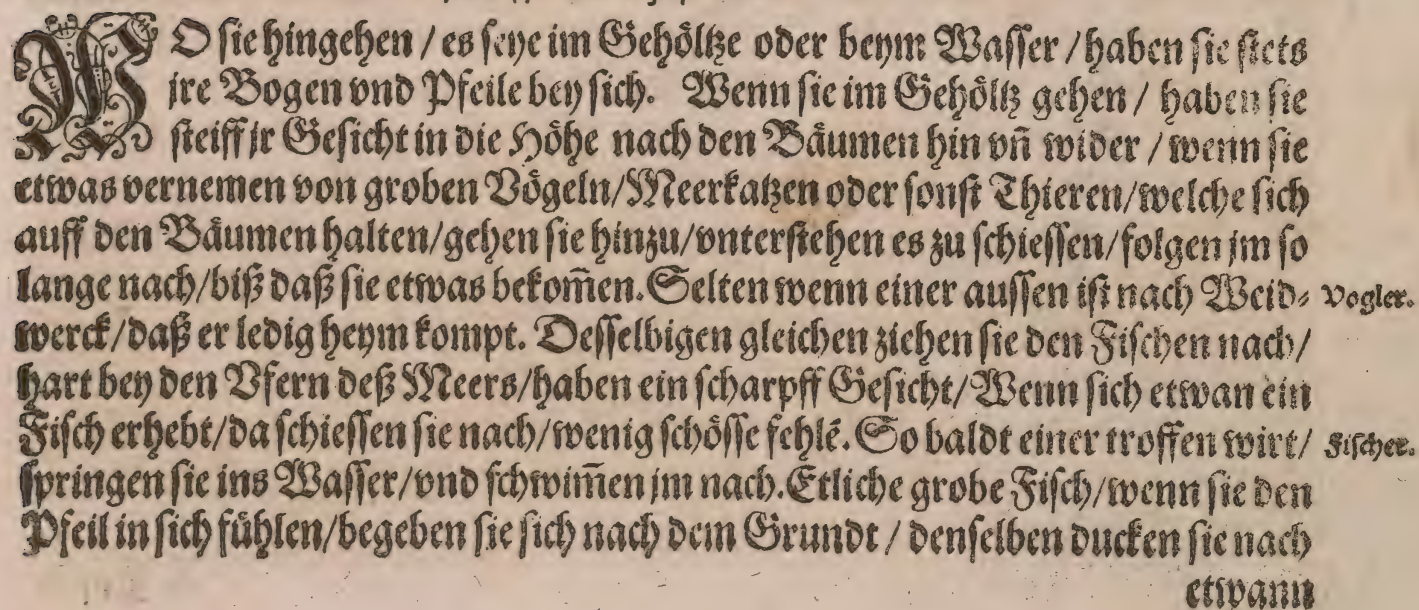 WO sie hingehen / es seye im Gehöltze oder beym Wasser / haben sie stets
jre Bogen vnd Pfeile bey sich. Wenn sie im Gehöltz gehen / haben sie
steiff jr Gesicht in die Höhe nach den Bäumen hin vñ wider / wenn sie
etwas vernemen von groben Vögeln/Meerkatzen oder sonst Thieren/welche sich
auff den Bäumen halten/gehen sie hinzu/vnterstehen es zu schiessen/folgen jm so
lange nach/biß daß sie etwas bekom̃en. Selten wenn einer aussen ist nach Weid- Vogler.
werck/daß er ledig heym kompt. Desselbigen gleichen ziehen sie den Fischen nach/
hart bey den Vfern deß Meers/haben ein scharpff Gesicht/Wenn sich etwan ein
Fisch erhebt/da schiessen sie nach/wenig schösse fehlẽ. So baldt einer troffen wirt/ Fischer.
springen sie ins Wasser/vnd schwim̃en jm nach. Etliche grobe Fisch/wenn sie den
Pfeil in sich fühlen/begeben sie sich nach dem Grundt / denselben ducken sie nach
etwann